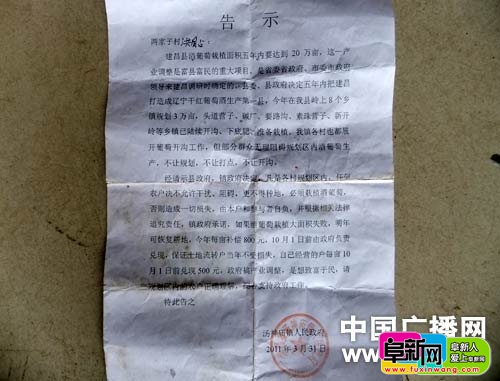 告 示
两家子村
建昌县酒葡萄栽植面积五年内要达到 20 万亩，这一产
业调整是富县富民的重大项目，是省委省政府、市委市政府
领导来建昌调研时确定的，县委、县政府决定五年内把建昌
打造成辽宁干红葡萄酒生产第一县，今年在我县岭上8个乡
镇规划3万亩，头道营子、碱厂、要路沟、素珠营子、新开
岭等乡镇已陆续开沟、下底肥、准备栽植，我镇各村也都展
开葡萄开沟工作，但部分群众无理阻碍规划区内酒葡萄生
产，不让规划，不让打点，不让开沟。
经请示县政府，镇政府决定，凡是各村规划区内，任何
农户决不允许干扰、阻碍，更不得种地，必须栽植酒葡萄，
否则造成一切损失，由本户和参与者自负，并根据相关法律
追究责任，镇政府承诺，如果酒葡萄栽植大面积失败，明年
可恢复耕地，今年每亩补偿 800 元，10 月 1 日前由政府负责
兑现，保证土地流转户当年不受损失，自己经营的户每亩 10
月 1 日前兑现 500 元，政府搞产业调整，是想致富于民，请
规划区内的农户正确理解，支持政府工作。
特此告之
汤神庙镇人民政府
2011 年 3 月 31 日
中国广播网
阜新网
阜新人
爱上阜新网
www.fuxinwang.com